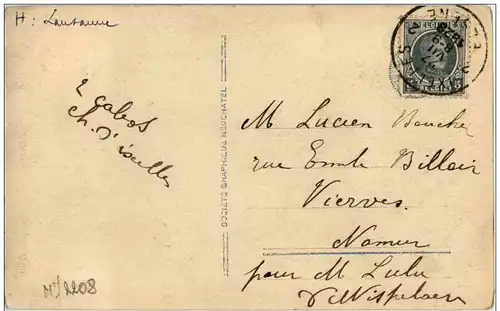 H: Lausanne
2 gabos
ch. d'ixelles
SOCIÉTÉ GRAPHIQUE NEUCHATEL
M Lucien Boucher
rue Emile Billoir
Vierves
Namur
pour M Lulu
No 2208